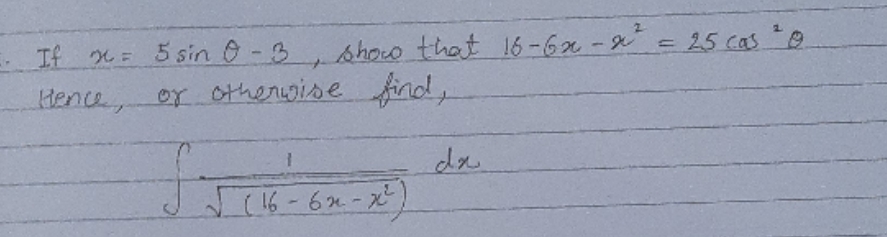 . If x = 5 sin θ - 3, show that 16 - 6x - x² = 25 cos² θ
Hence, or otherwise find,
∫ 1/√(16 - 6x - x²) dx